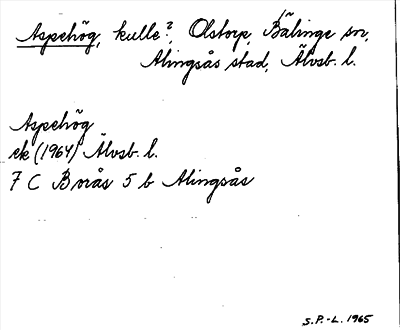 Aspehög, kulle?, Olstorp, Bälinge sn,
Alingsås stad, Älvsb. l.
Aspehög
ek (1964) Älvsb. l.
7 C Borås 5 b Alingsås
S.P.-L. 1965